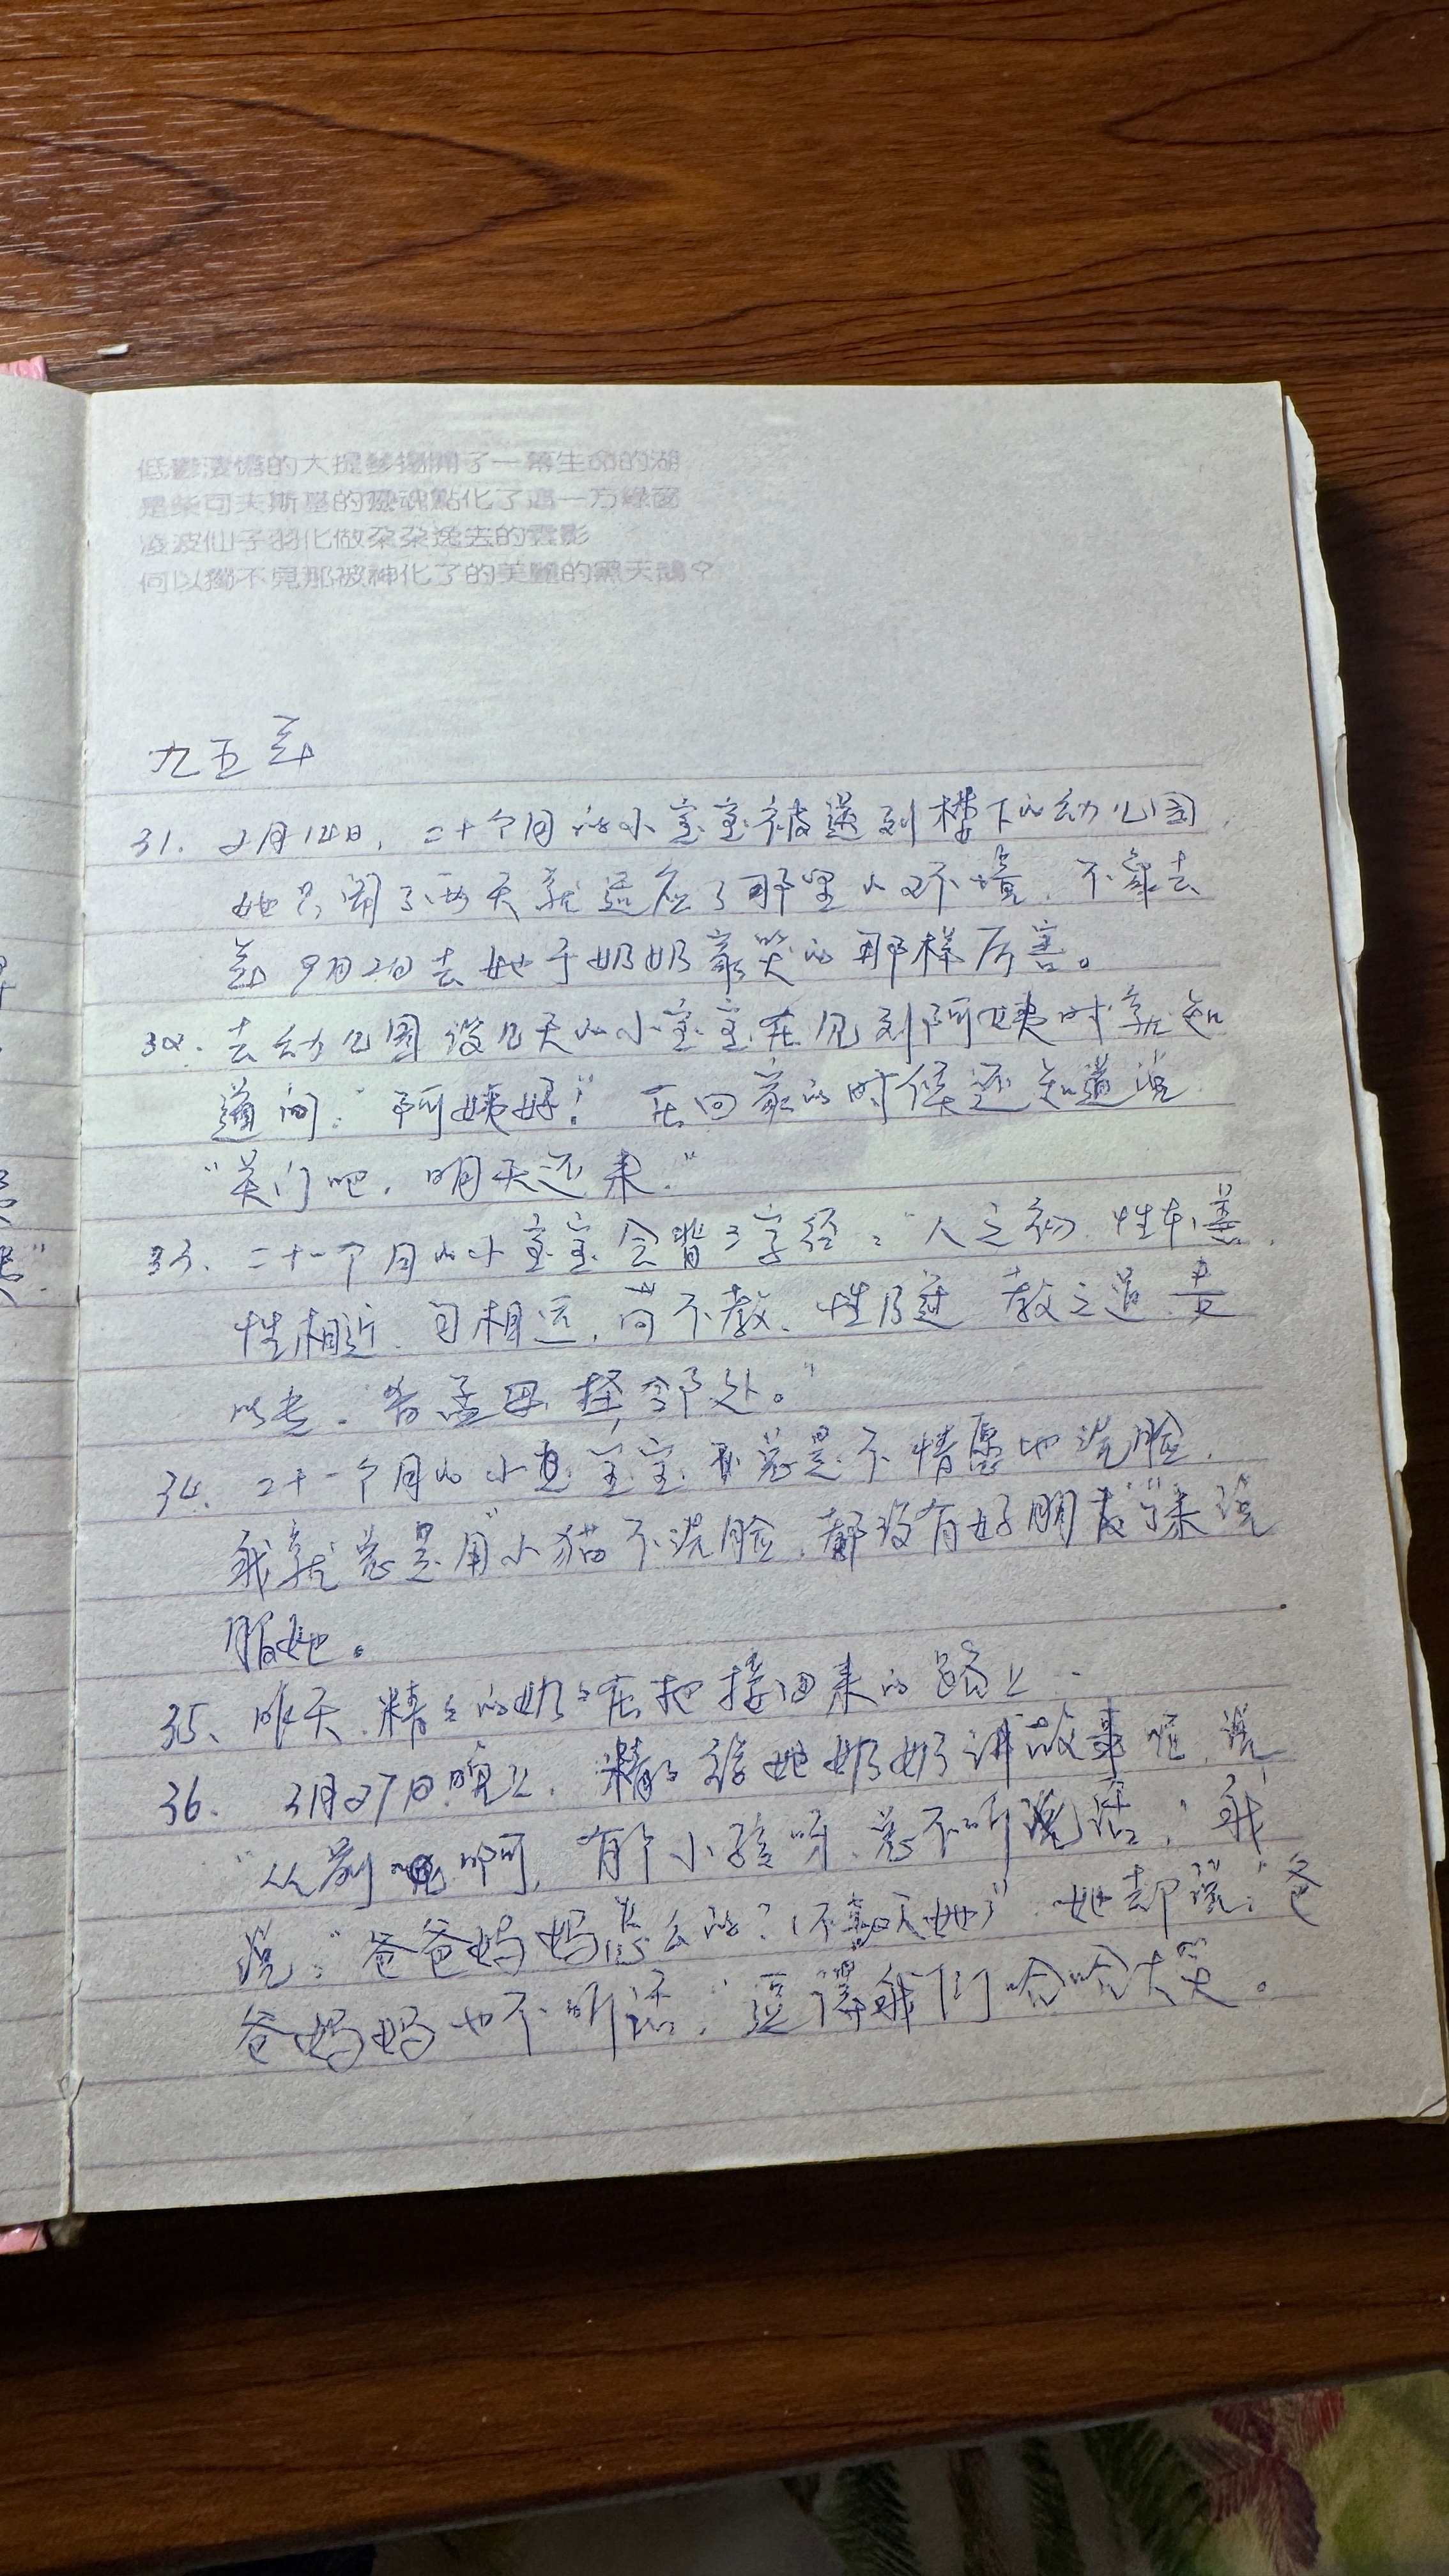 低鬱淒愴的大提琴揚開了一幕生命的湖
是柴可夫斯基的靈魂點化了這一方綠茵
凌波仙子羽化做朵朵逸去的雲影
何以獨不見那被神化了的美麗的黑天鵝？
九五年
31. 2月14日，二十个月的小宝宝被送到楼下的幼儿园，
她只闹了两天就适应了那里的环境，不象去
年9月2日去她于奶奶家哭的那样厉害。
32. 去幼儿园没几天的小宝宝在见到阿姨时就知
道问："阿姨好！" 在回家的时候还知道说
"关门吧，明天还来。"
33. 二十一个月的小宝宝会背三字经："人之初 性本善，
性相近、习相远，苟不教、性乃迁 教之道 贵
以专。昔孟母 择邻处。"
34. 二十一个月的小宝宝 总是不情愿地洗脸，
我就总是用"小猫不洗脸，都没有好朋友"来说
服她。
35、昨天，精精的奶奶在把接回来的路上..
36、 3月27日晚上，精精给她奶奶讲故事呢，说
"从前 啊，有个小孩呀、总不听说话，"我
说："爸爸妈妈怎么的？（不喜欢她）"她却说："爸
爸妈妈也不听话，"逗得我们哈哈大笑。